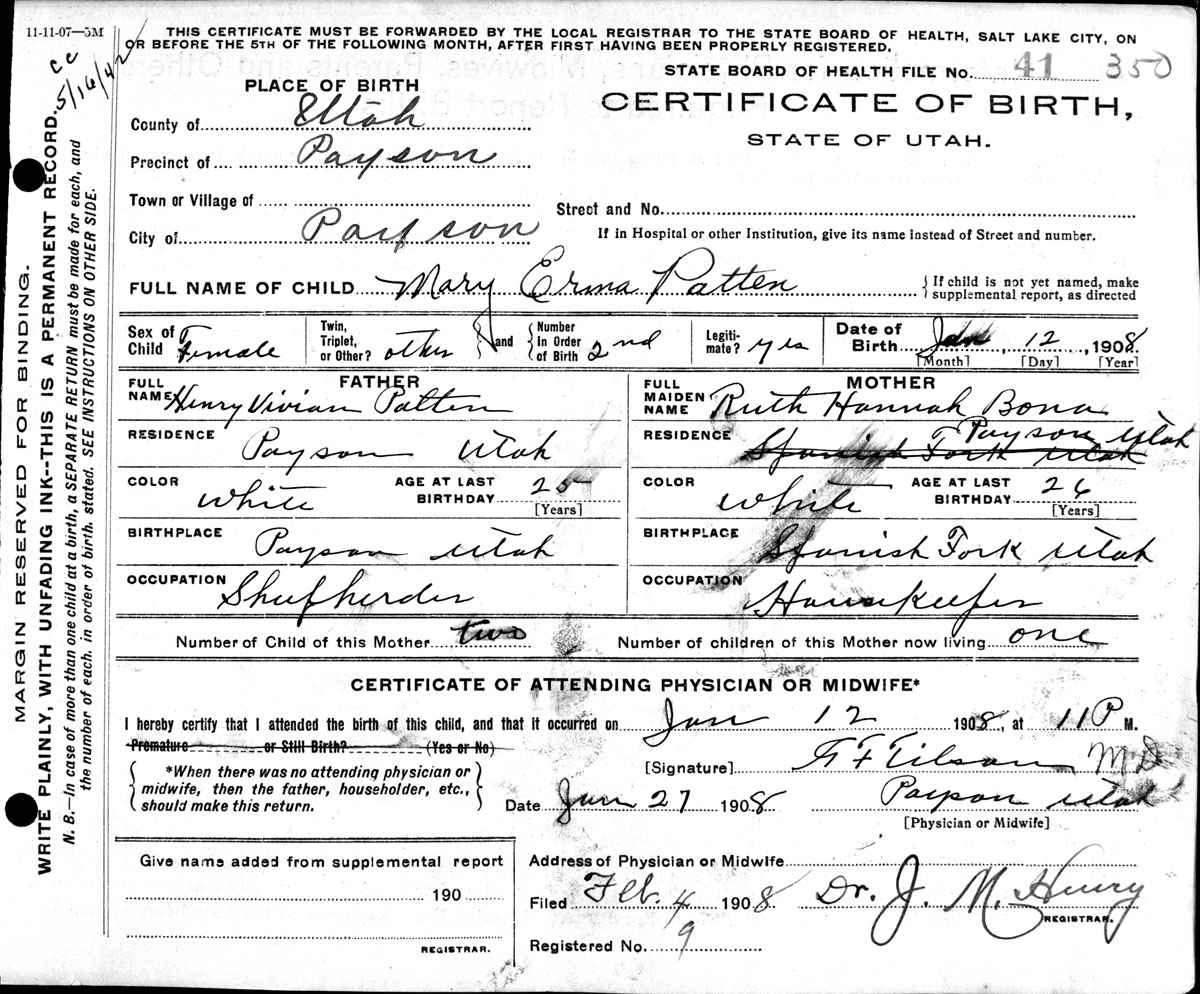 11-11-07—5M
THIS CERTIFICATE MUST BE FORWARDED BY THE LOCAL REGISTRAR TO THE STATE BOARD OF HEALTH, SALT LAKE CITY, ON
OR BEFORE THE 5TH OF THE FOLLOWING MONTH, AFTER FIRST HAVING BEEN PROPERLY REGISTERED.
cc
5/16/42
STATE BOARD OF HEALTH FILE No. 41 350
CERTIFICATE OF BIRTH,
STATE OF UTAH.
PLACE OF BIRTH
County of Utah
Precinct of Payson
Town or Village of
City of Payson
Street and No.
If in Hospital or other Institution, give its name instead of Street and number.
FULL NAME OF CHILD Mary Erma Patten
{If child is not yet named, make
supplemental report, as directed
Sex of
Child Female
Twin,
Triplet,
or Other? other
{and}
Number
In Order
of Birth 2nd
Legiti-
mate? yes
Date of
Birth Jan, 12, 1908.
[Month] [Day] [Year]
FATHER
FULL
NAME Henry Vivian Patten
RESIDENCE Payson Utah
COLOR White
AGE AT LAST
BIRTHDAY 25
[Years]
BIRTHPLACE Payson Utah
OCCUPATION Sheepherder
MOTHER
FULL
MAIDEN
NAME Ruth Hannah Bona
Payson Utah
RESIDENCE Spanish Fork Utah
COLOR White
AGE AT LAST
BIRTHDAY 26
[Years]
BIRTHPLACE Spanish Fork Utah
OCCUPATION Housekeeper
Number of Child of this Mother two
Number of children of this Mother now living one
CERTIFICATE OF ATTENDING PHYSICIAN OR MIDWIFE*
I hereby certify that I attended the birth of this child, and that it occurred on Jan 12 1908, at 11 P M.
Premature or Still Birth? (Yes or No)
{*When there was no attending physician or
midwife, then the father, householder, etc.,
should make this return.}
[Signature] Tilson M D
Date Jan 27 1908
Payson Utah
[Physician or Midwife]
Give name added from supplemental report
190
REGISTRAR.
Address of Physician or Midwife
Filed Feb. 4 1908 Dr. J. M. Henry
REGISTRAR.
Registered No. 9
MARGIN RESERVED FOR BINDING.
WRITE PLAINLY, WITH UNFADING INK--THIS IS A PERMANENT RECORD.
N. B.—In case of more than one child at a birth, a SEPARATE RETURN must be made for each, and
the number of each, in order of birth, stated. SEE INSTRUCTIONS ON OTHER SIDE.